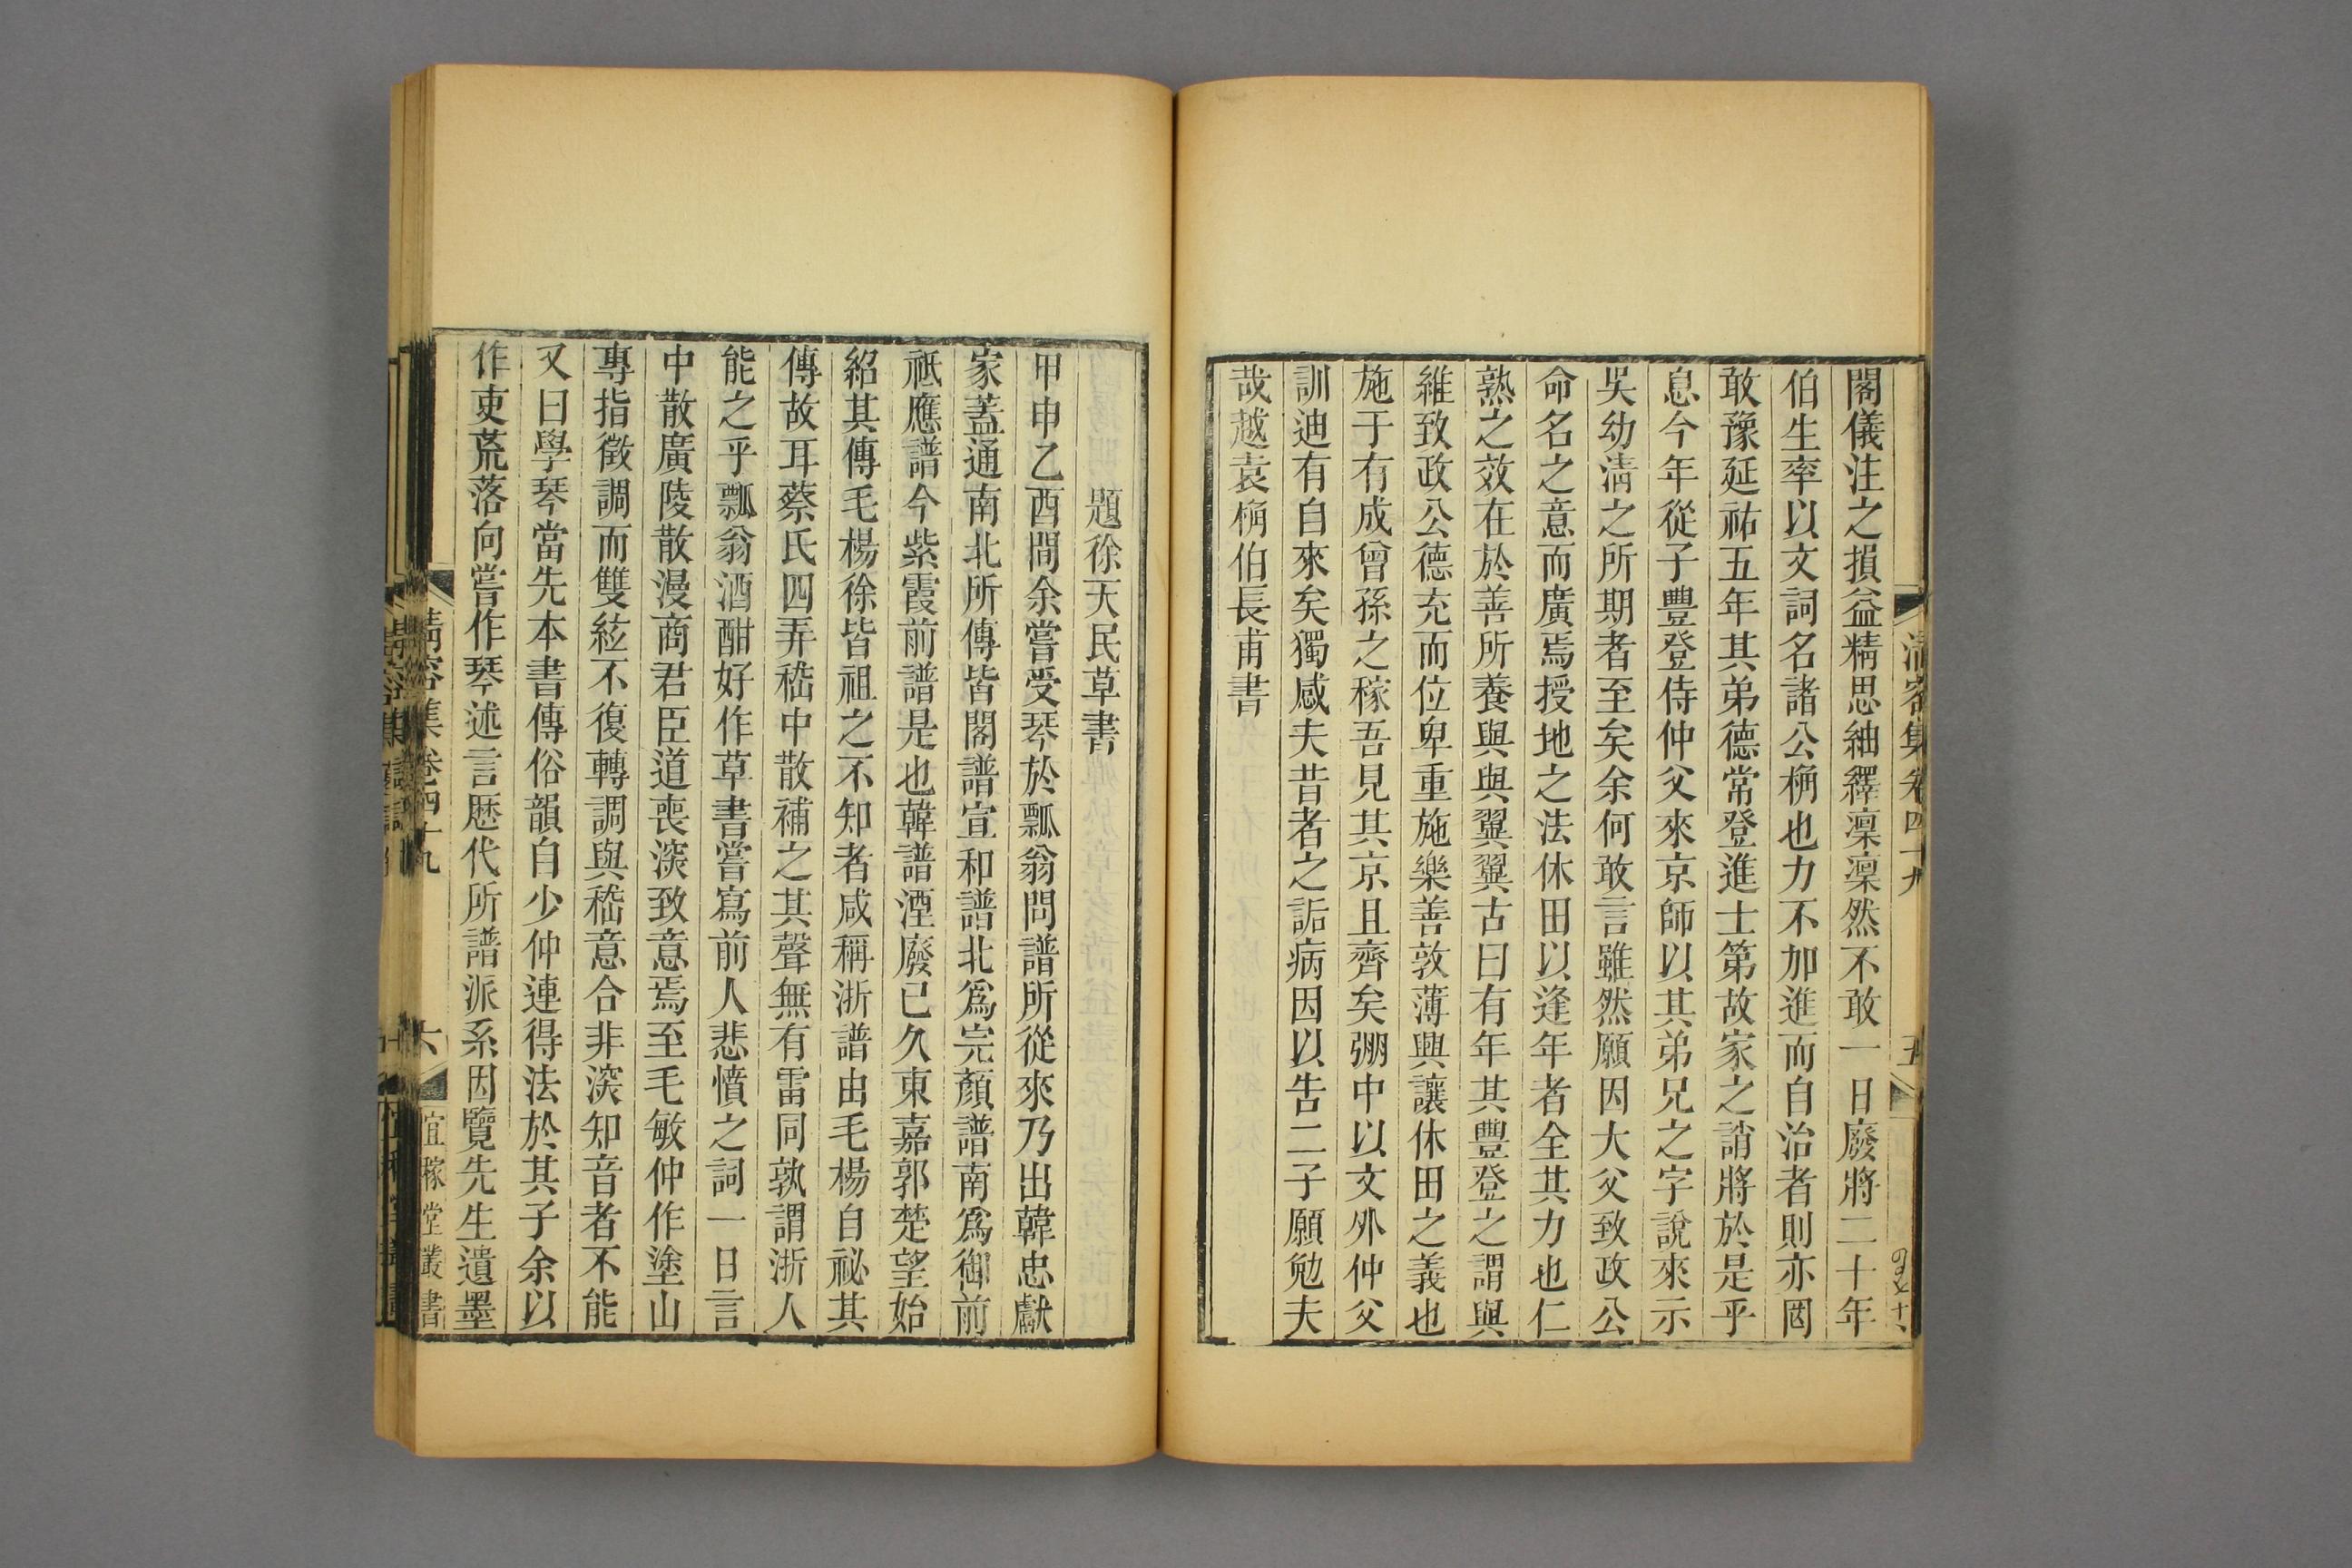 清容集卷四十九
五
閣儀注之損益精思紬繹凜凜然不敢一日廢將二十年
伯生率以文詞名諸公稱也力不加進而自治者則亦罔
敢豫延祐五年其弟德常登進士第故家之誚將於是乎
息今年從子豐登侍仲父來京師以其弟兄之字說來示
吳幼淸之所期者至矣余何敢言雖然願因大父致政公
命名之意而廣焉授地之法休田以逢年者全其力也仁
熟之效在於善所養與與翼翼古曰有年其豐登之謂與
維致政公德充而位卑重施樂善敦薄興讓休田之義也
施于有成曾孫之稼吾見其京且齊矣弸中以文外仲父
訓迪有自來矣獨感夫昔者之詬病因以吿二子願勉夫
哉越袁桷伯長甫書
題徐天民草書
甲申乙酉間余嘗受琴於瓢翁問譜所從來乃出韓忠獻
家蓋通南北所傳皆閣譜宣和譜北爲完顏譜南爲御前
祇應譜今紫霞前譜是也韓譜湮廢已久東嘉郭楚望始
紹其傳毛楊徐皆祖之不知者咸稱浙譜由毛楊自祕其
傳故耳蔡氏四弄嵇中散補之其聲無有雷同孰謂浙人
能之乎瓢翁酒酣好作草書嘗寫前人悲憤之詞一日言
中散廣陵散漫商君臣道喪深致意焉至毛敏仲作塗山
專指徵調而雙絃不復轉調與嵇意合非深知音者不能
又曰學琴當先本書傳俗韻自少仲連得法於其子余以
作吏荒落向嘗作琴述言歷代所譜派系因覽先生遺墨
清容集卷四十九
六
宜稼堂叢書